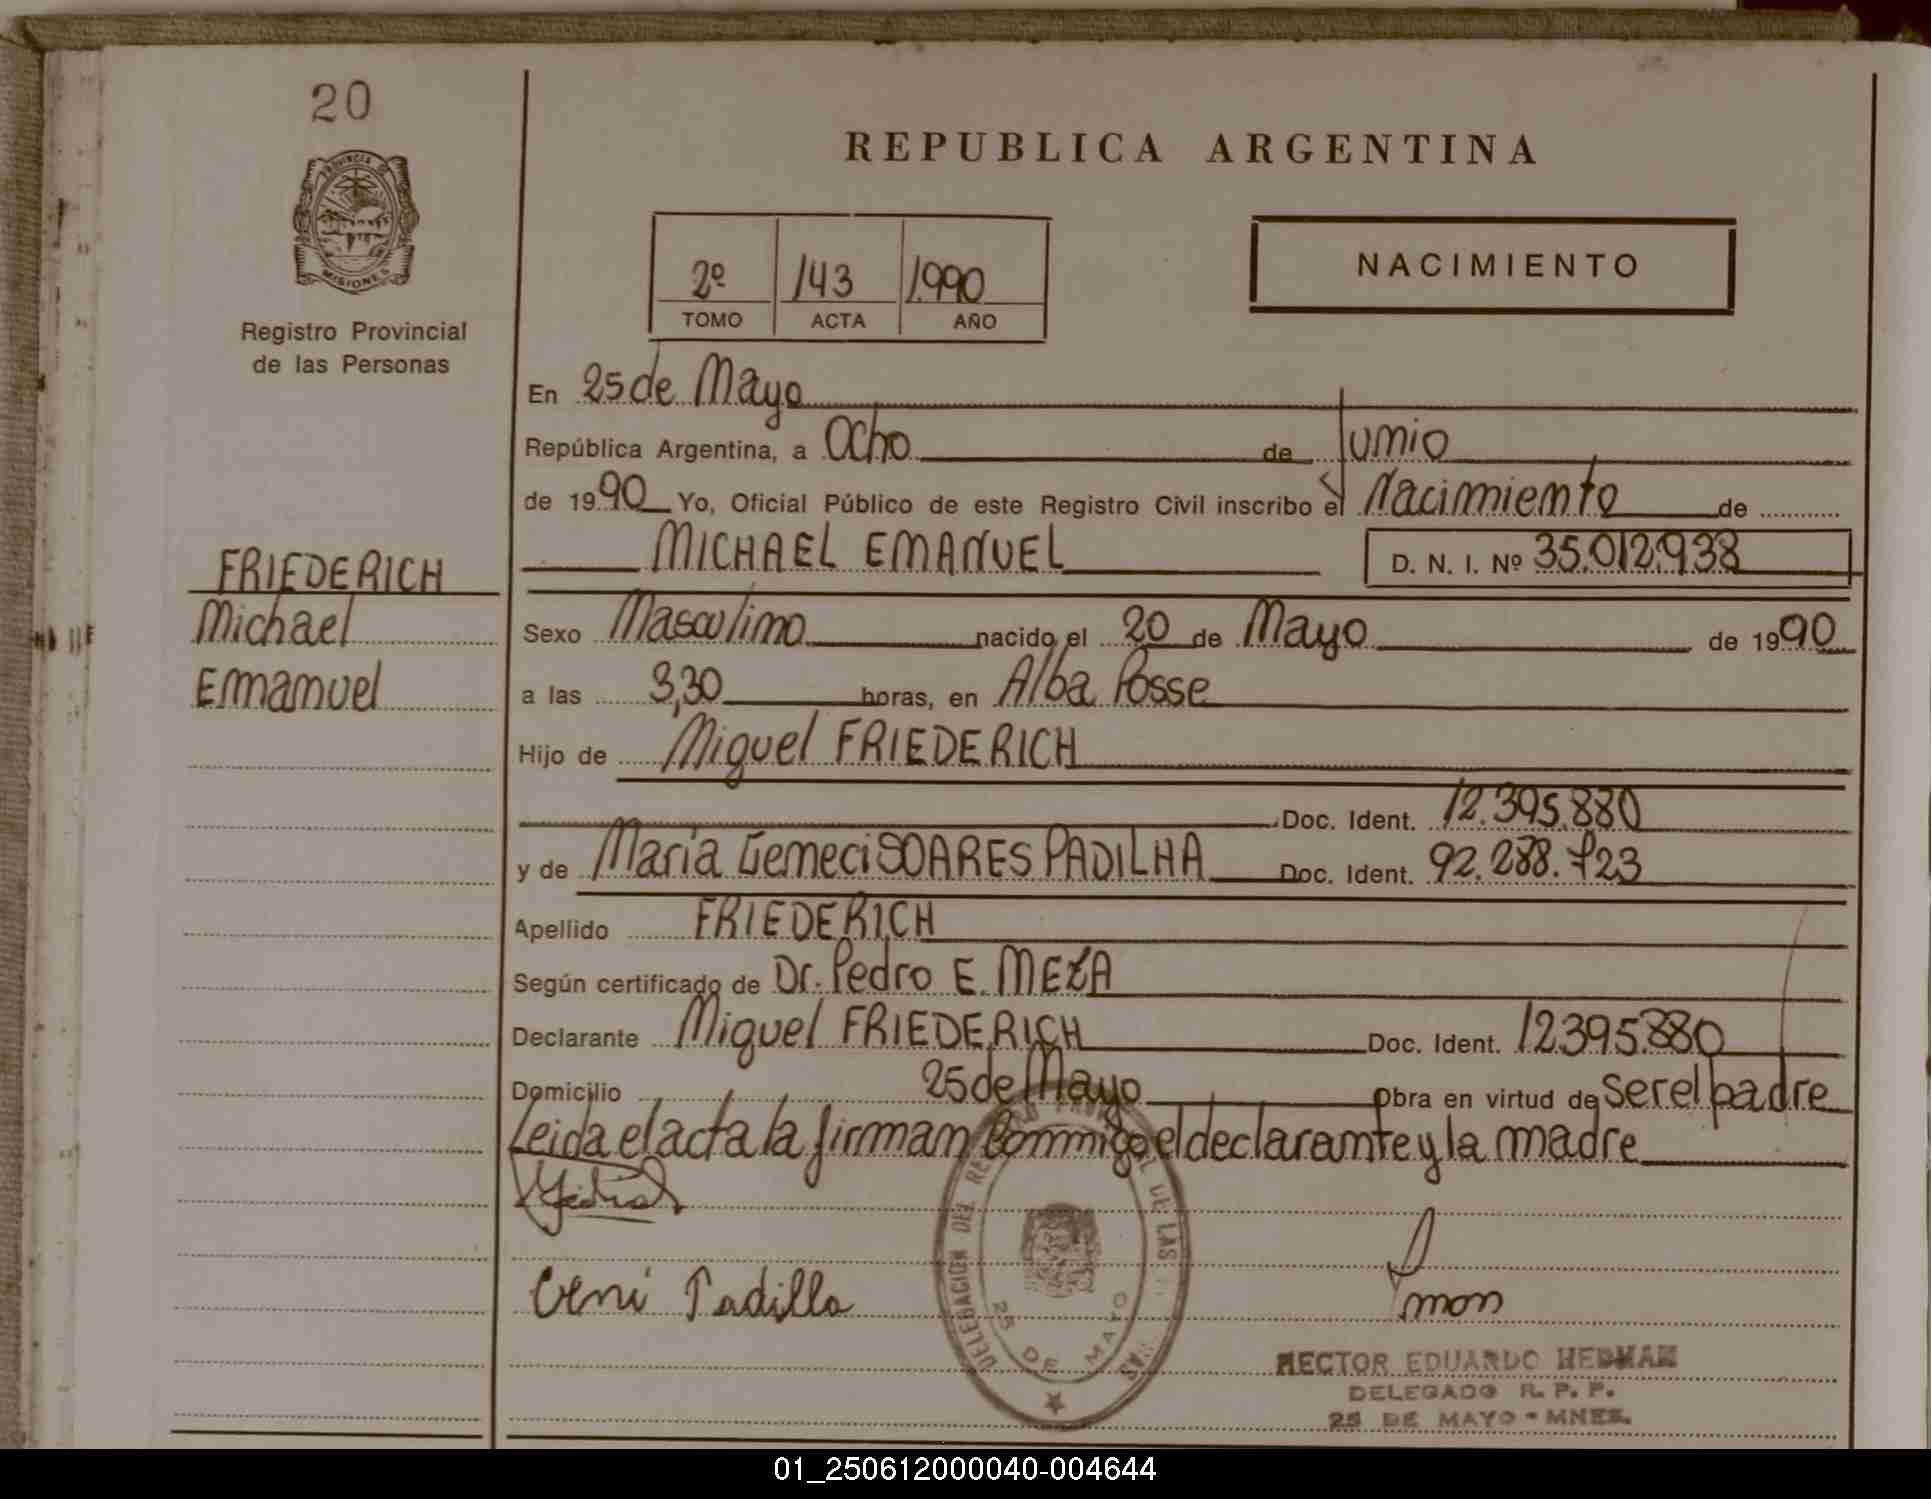 20
REPUBLICA ARGENTINA
PROVINCIA DE
MISIONES
Registro Provincial
de las Personas
2º 143 1.990
TOMO ACTA AÑO
NACIMIENTO
En 25 de Mayo
República Argentina, a Ocho de Junio
de 1990 Yo, Oficial Público de este Registro Civil inscribo el Nacimiento de
MICHAEL EMANUEL D. N. I. Nº 35.012.938
FRIEDERICH
Michael
Emanuel
Sexo Masculino nacido el 20 de Mayo de 1990
a las 3,30 horas, en Alba Posse
Hijo de Miguel FRIEDERICH
Doc. Ident. 12.395.880
y de María Gemeci SOARES PADILHA Doc. Ident. 92.288.723
Apellido FRIEDERICH
Según certificado de Dr. Pedro E. MEZA
Declarante Miguel FRIEDERICH Doc. Ident. 12395.880
Domicilio 25 de Mayo Obra en virtud de ser el padre
Leida el acta la firman conmigo el declarante y la madre
Padilla
DELEGACION DEL DE LAS
25 DE MAYO
HECTOR EDUARDO HEDMAN
DELEGADO R. P. P.
25 DE MAYO - MNES.
01_250612000040-004644